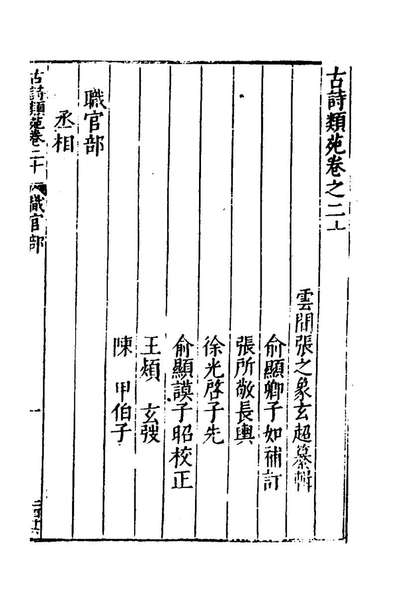 古詩類苑卷之二十
雲間張之象玄超纂輯
俞顯卿子如補訂
張所敬長輿
徐光啓子先
俞顯謨子昭校正
王熲 玄弢
陳 甲伯子
職官部
丞相
古詩類苑卷二十 職官部 一